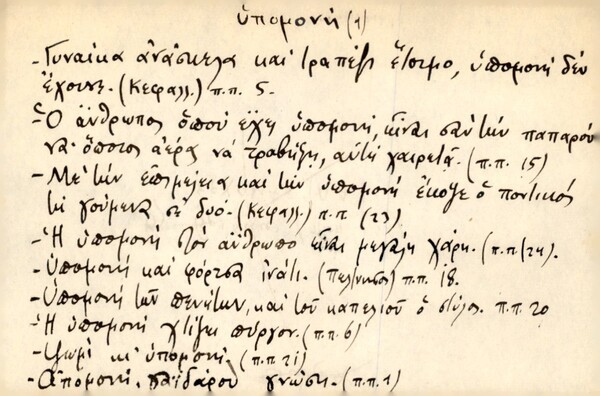 ὑπομονή (1)
- Γυναίκα ἀνάσκελα καί τραπέζι ἕτοιμο, ὑπομονή δέν
ἔχουνε. (Κεφαλλ.) π.π. 5.
- Ὁ ἄνθρωπος ὅπού ἔχει ὑπομονή, εἶναι σάν τήν παπαρού
να· ὅποιος ἀέρας νά τραβήξη, αὐτή χαιρετᾶ. (π.π. 15)
- Μέ τήν ἐπιμέλεια καί τήν ὑπομονή ἔκοψε ὁ ποντικός
τή γούμενα σέ δυό. (Κεφαλλ.) π.π (23)
- Ἡ ὑπομονή στόν ἄνθρωπο εἶναι μεγάλη χάρη. (π.π. 24).
- Ὑπομονή καί φόρτσα ἰνάτι. (Πελ/νησος) π.π. 18.
- Ὑπομονή τῶν πενήτων, καί τοῦ καπελιοῦ ὁ στύλος. π.π. 20
- Ἡ ὑπομονή χτίζει πύργον. (π.π. 6)
- Ψωμί κι' ὑπομονή. (π.π. 21)
- Ἀπομονή, γαϊδάρου γνώση. (π.π. 1)